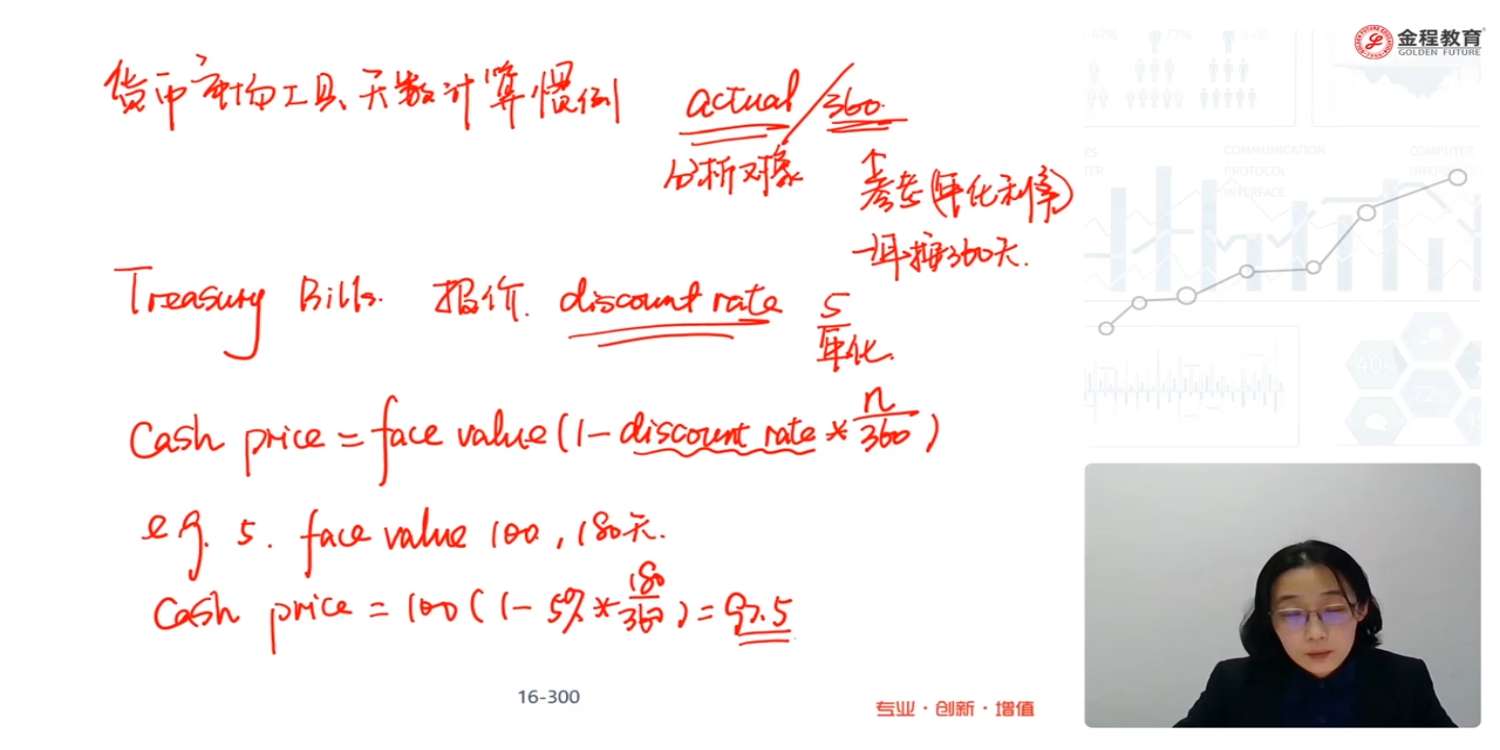 金程教育
GOLDEN FUTURE
货币市场工具、天数计算惯例 actual/360
分析对象
↑
参考(年化利率)
一年按360天.
Treasury Bills. 报价. discount rate 5
年化.
Cash price = face value (1 - discount rate * n/360)
e.g. 5. face value 100, 180天.
Cash price = 100 (1 - 5% * 180/360) = 97.5
COMMUNICATION
PROTOCOL
INTERFACE
16-300
专业·创新·增值